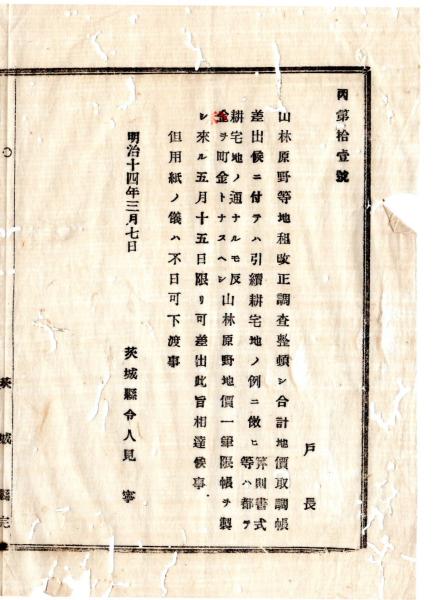 丙第拾壹號
戸長
山林原野等地租改正調査整頓シ合計地價取調帳
差出候ニ付テハ引續耕宅地ノ例ニ倣ヒ算則書式等ハ都テ
耕宅地ノ通ナルモ反金ヲ町金トナスヘシ山林原野地價一筆限帳ヲ製
シ來ル五月十五日限リ可差出此旨相達候事
但用紙ノ儀ハ不日可下渡事
明治十四年三月七日
茨城縣令人見寧
茨城縣